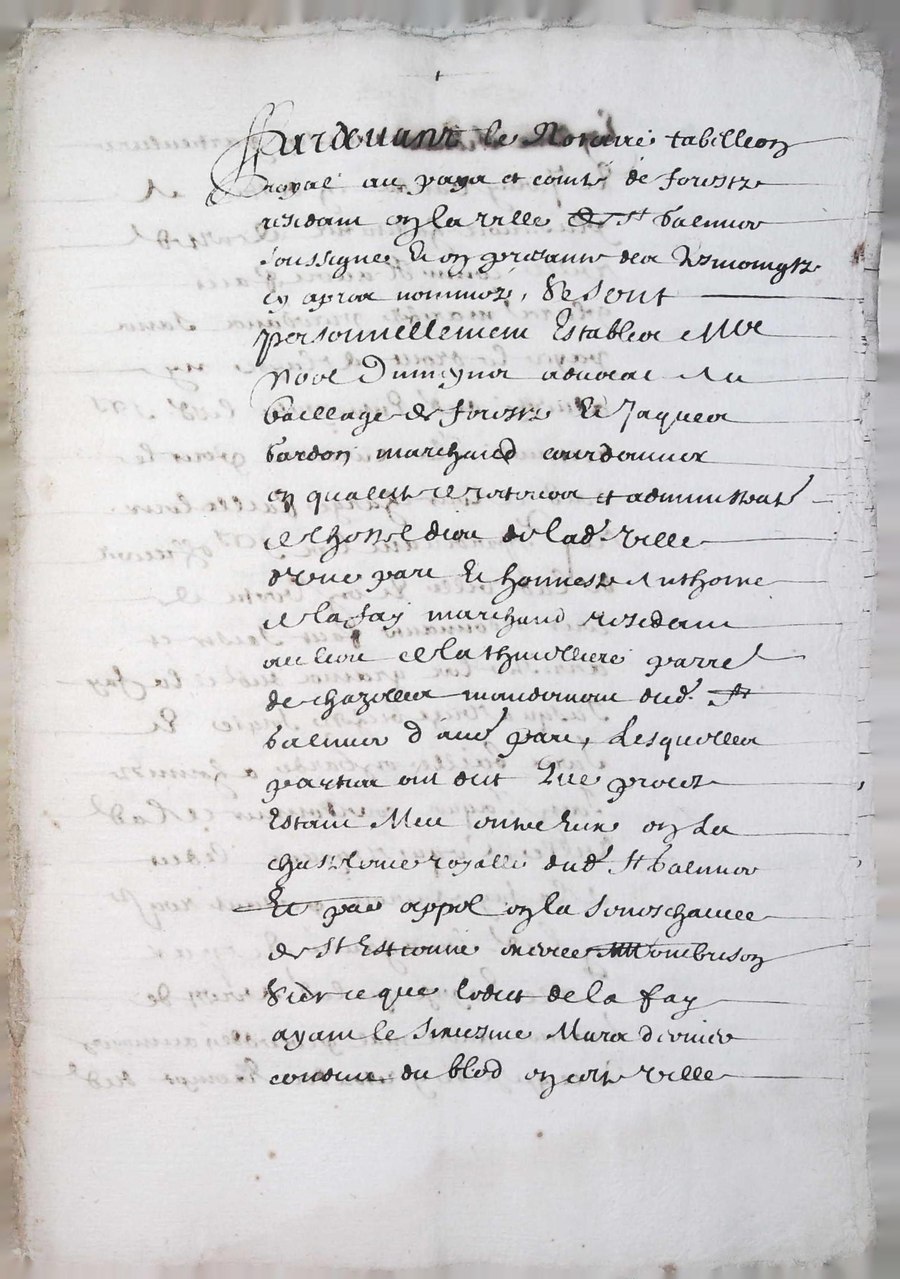 Pardevant le Notaire tabellion
royal au pays et comté de forestz
residant en la ville de St Galmier
soussigné et en presance des tesmoingtz
cy apres nommez, Se sont
personnellement Establis Me
Noel advocat Au
bailliage de forestz Et Jaques
bardon marchand courdonnier
en qualité de recteurs et administrats
de lhostel dieu de lad. ville
d'une part Et honneste Anthoine
de la fay marchand residant
au lieu de la thuilliere parre
de chazelles mandement dud. St
Galmier d'autre part, Lesquelles
parties ont dit Que procez
Estant Meu entre Eux en La
chastelenie royalle dud. St Galmier
Et par appel en la Seneschaucee
de St Estienne Montbrison
Sur ce que ledit de la fay
ayant le Mars dernier
conduit du bled en cette ville